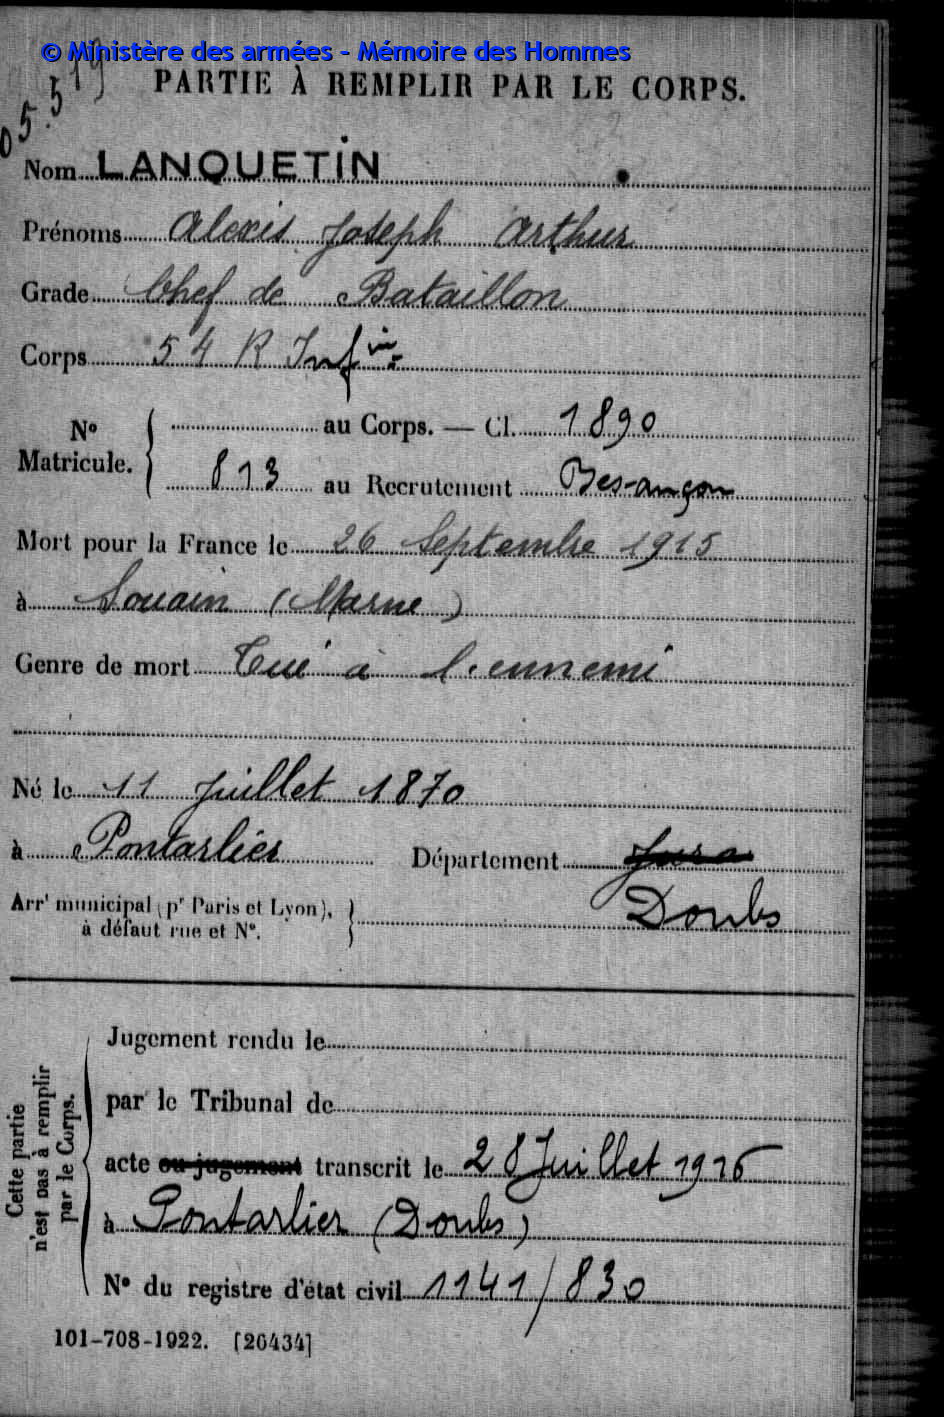 © Ministère des armées - Mémoire des Hommes
PARTIE À REMPLIR PAR LE CORPS.
Nom LANQUETIN
Prénoms Alexis Joseph Arthur
Grade Chef de Bataillon
Corps 54 R Inf ie
N° Matricule. au Corps. — Cl. 1890
813 au Recrutement Besançon
Mort pour la France le 26 Septembre 1915
à Souain (Marne)
Genre de mort Tué à l'ennemi
Né le 11 Juillet 1870
à Pontarlier Département Jura
Doubs
Arrt municipal (pr Paris et Lyon),
à défaut rue et N°.
Cette partie
n'est pas à remplir
par le Corps.
Jugement rendu le
par le Tribunal de
acte ou jugement transcrit le 28 Juillet 1916
à Pontarlier (Doubs)
N° du registre d'état civil 1141/830
101-708-1922. [26434]